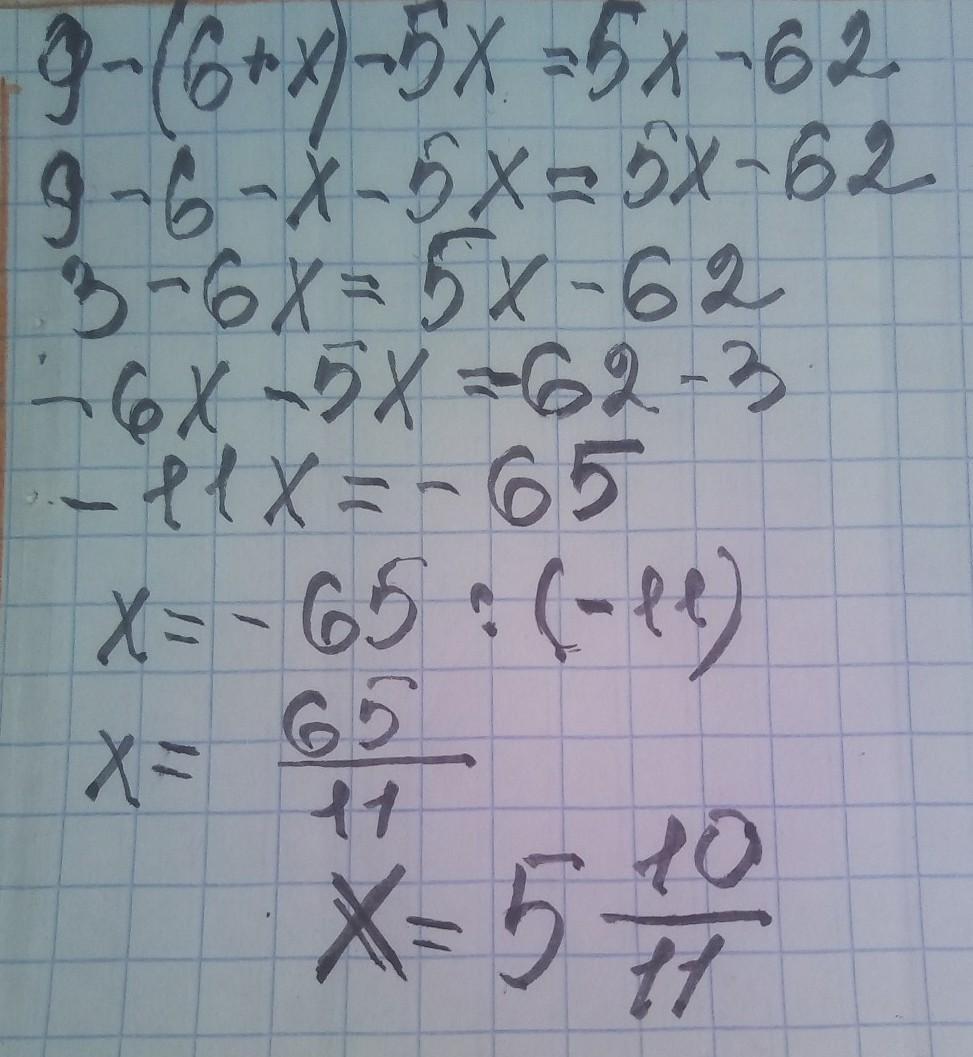 9-(6+x)-5x=5x-62
9-6-x-5x=5x-62
3-6x=5x-62
-6x-5x=-62-3
-11x=-65
x=-65:(-11)
x=65/11
x=5 10/11